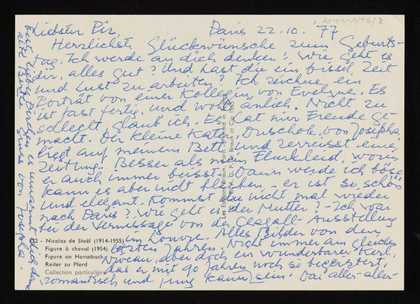 Paris 22.10.77
Herzlichste Glückwünsche zum Geburts-
tag. Ich werde an dich denken! Wie geht es
dir, alles gut? Und hast du ein bisschen Zeit
und Lust zu arbeiten? Ich zeichne ein
Porträt von einer Kollegin von Evelyne. Es
ist fast fertig, und wohl ähnlich. Nicht zu
schlecht glaub ich. Es hat mir Freude ge-
macht. Der kleine Kater, von Josepha
liegt auf meinem Bett und zerreisst eine
Zeitung. Besser als mein, wovon
er auch immer. Dann werde ich böse
kann es aber nicht bleiben - er ist so schön
und elegant. Kommst du nicht mal wieder
nach Paris? Wie geht es der Mutter? - Ich war
bei der Vernissage von der Chagall-Ausstellung
im Louvre. Alles Bilder von den
letzten Jahren. Nicht immer am gleichen
Niveau, aber doch ein wunderbarer Kerl,
das er mit 90 Jahren noch so begeistert,
romantisch und jung kann sein.
Nicolas de Staël (1914-1955)
Figure à cheval (1954)
Figure on Horseback
Reiter zu Pferd
Collection particulière